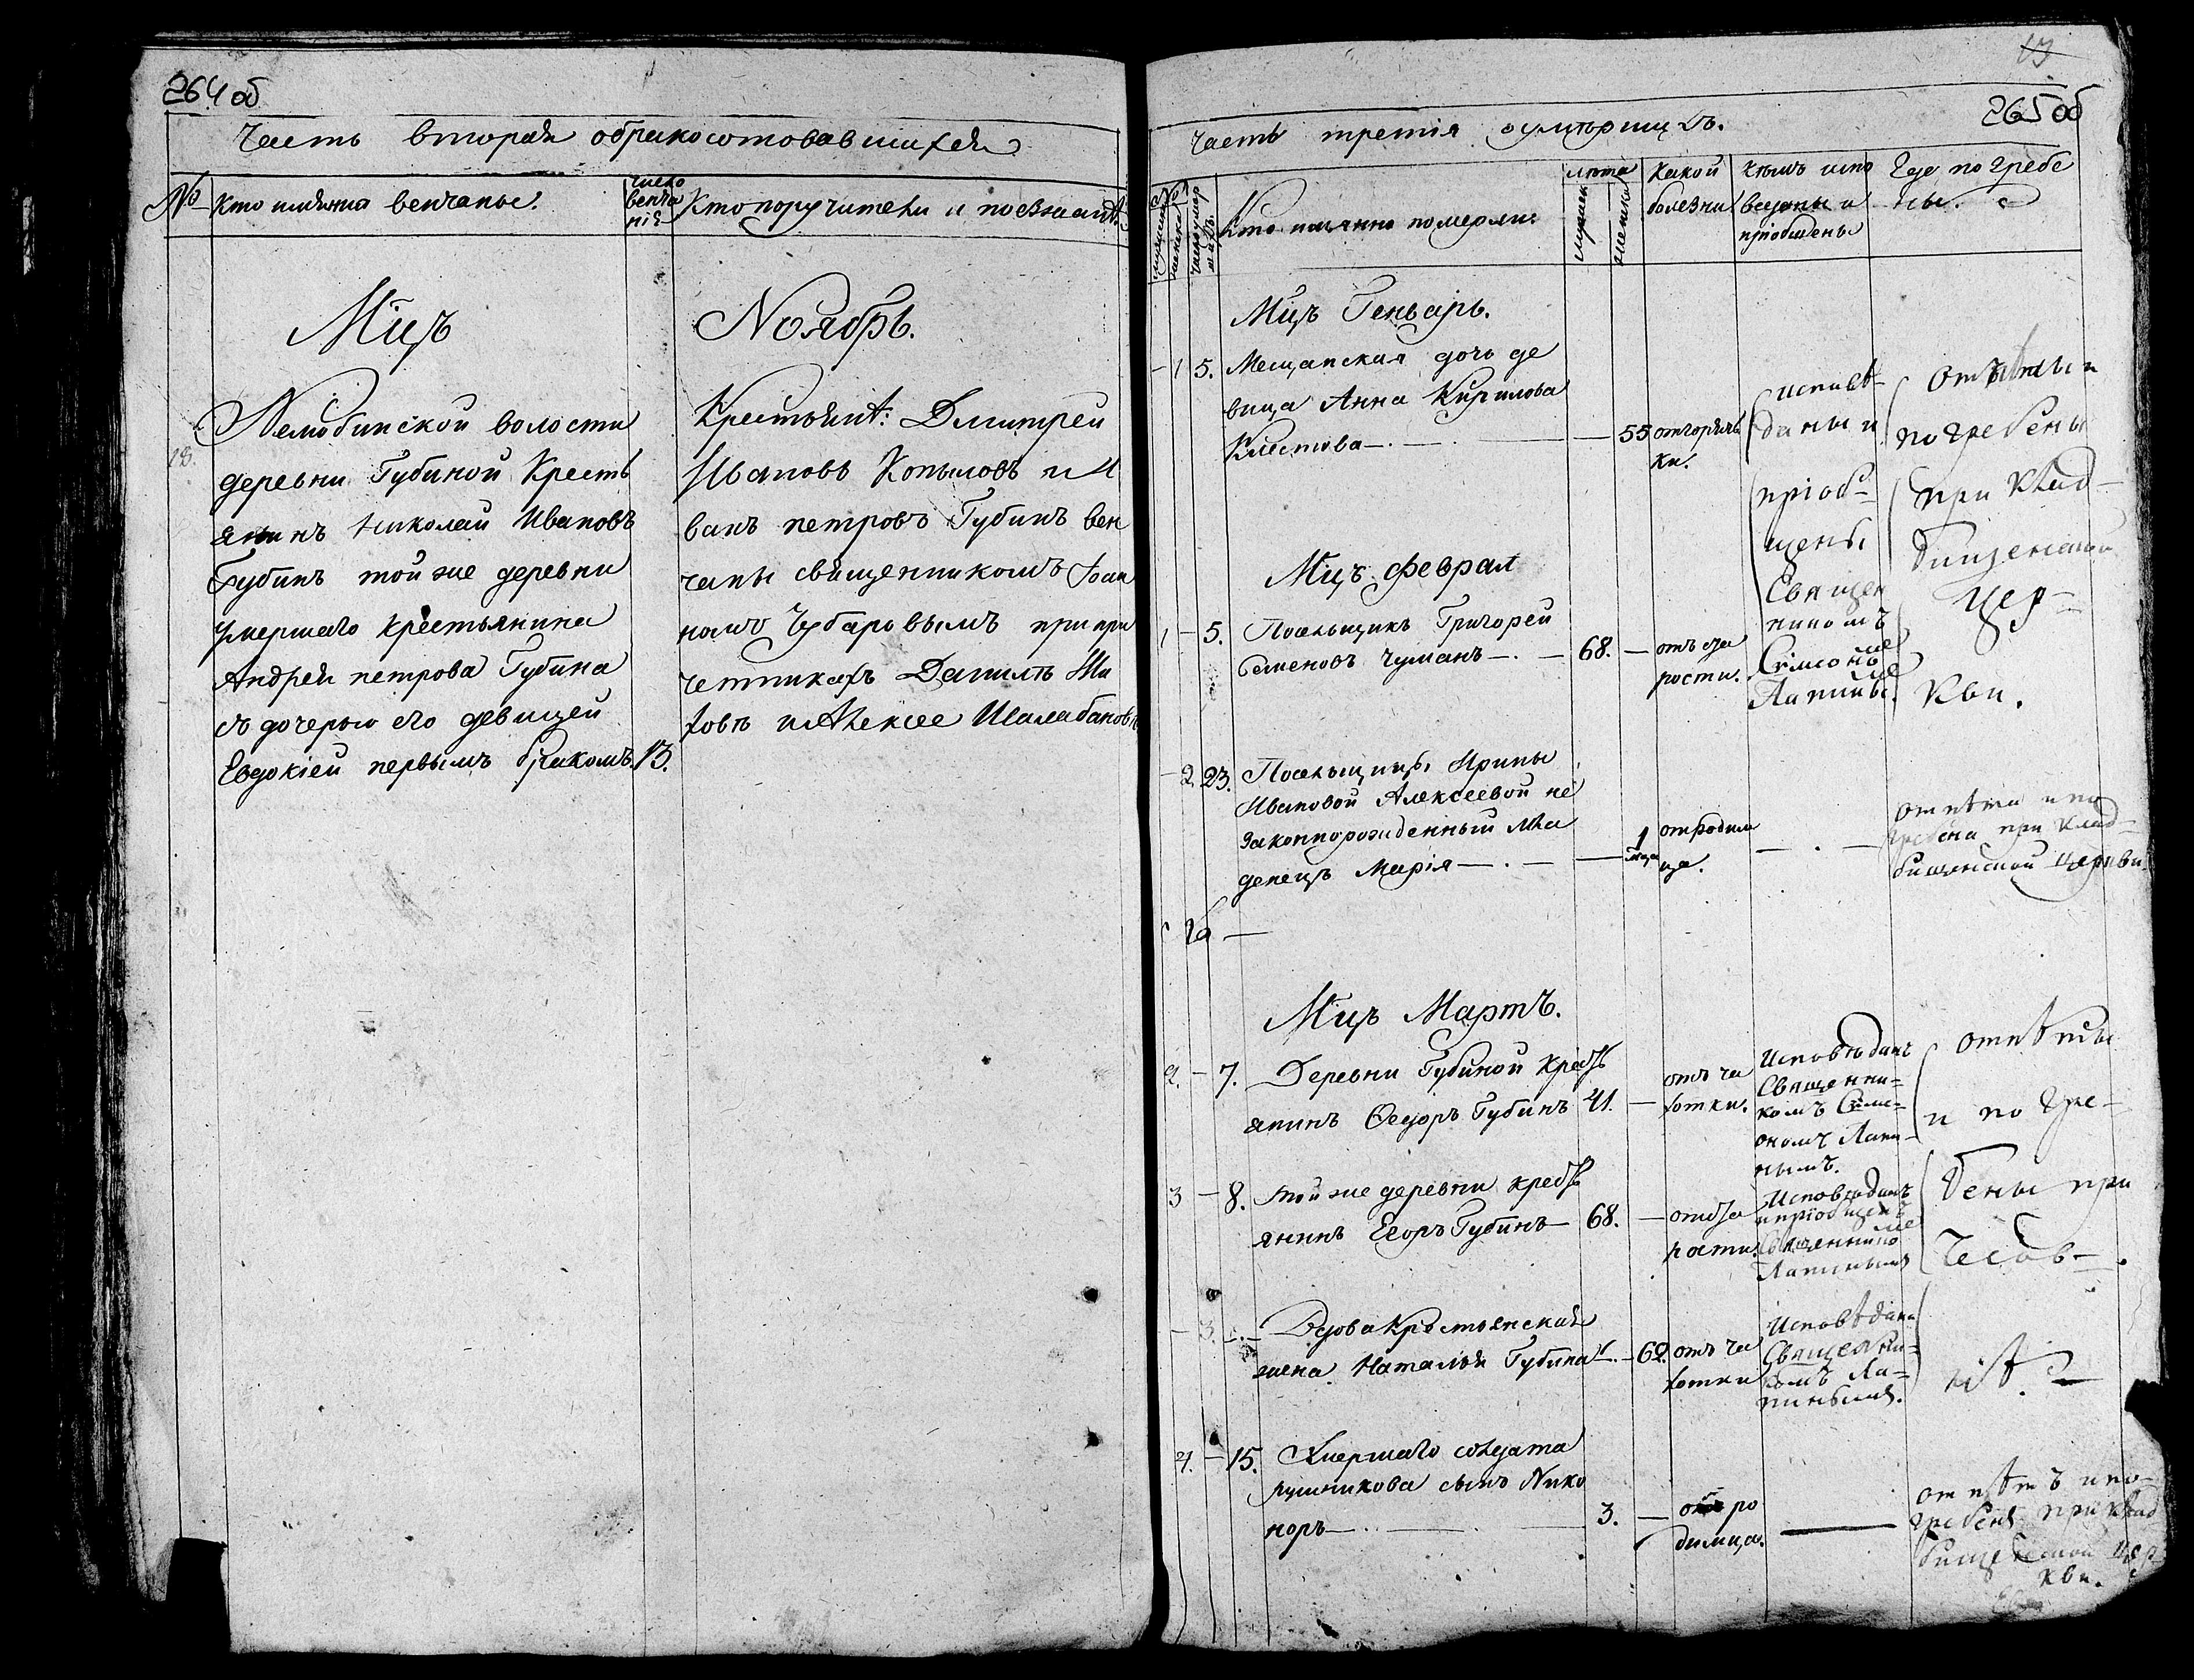 264 об
Часть вторая обракосотовавшихся
№
Кто имянно венчаные.
число
венча
нія
Кто поручители и поезжанѣ
Мцъ Ноябрь.
18.
волости
деревни Губиной Кресть
янинъ Николай Ивановъ
Губинъ той же деревни
умершаго крестьянина
Андрея петрова Губина
съ дочерью его девицей
Евдокіей первымъ бракомъ. 13.
Крестьянѣ: Дмитрей
Ивановъ Копыловъ и И
ванъ петровъ Губинъ вен
чаны священникомъ Іоан
номъ Чубаровымъ при при
четникахъ Данилѣ Ши
ховѣ и Алексее Шалабановѣ
13
265 об
часть третія оумѣршихъ.
Кто имянно померли
лѣта
мужск
женска
Какой
болезни
кѣмъ испо
веданы и
пріобщены
Где погребе
ны.
Мцъ Генварь.
- 1 5. Мещанская дочь де
вица Анна Кирилова
Клестова — 55 отгорячь
ки.
исповѣ-
даны и
пріоб-
щены
Священ
никомъ
Сѵмеоно
Лапины.
Отпѣты и
погребены
при Клад-
бищенской
цер-
кви.
Мцъ феврал
1 - 5. Посельщикъ Григорей
Семеновъ Чуманъ — 68. — отъ ста
рости.
- 2 23. Посельщицы Ирины
Ивановой Алексеевой не
законнорожденный мла
денецъ Марія — 1
отродим
ца.
отпѣта и по
гребена при Клад-
бищенской Церкви
Мцъ Мартъ.
2. - 7. Деревни Губиной крест
янинъ Ѳедоръ Губинъ 41. — отъ ча
хотки.
Исповѣданъ
Священни-
комъ Сѵме-
ономъ Лапи-
нымъ.
отпѣты
и погре-
бены при
Часов-
нѣ.
3 - 8. той же деревни крест
янинъ Егоръ Губинъ — 68. — отста
рости.
Исповѣданъ
и пріобщенъ
Священнико
Лапинымъ
- 3. - Вдова Крестьянская
жена Наталья Губина — 62. отъ ча
хотки
Исповѣдана
Священни-
комъ Ла-
пинымъ.
4. - 15. Умершаго солдата
лушникова сынъ Нико
норъ — 3. — отъ ро
димца.
отпѣтъ и по-
гребенъ при Клад
бищенской Цер-
кви.